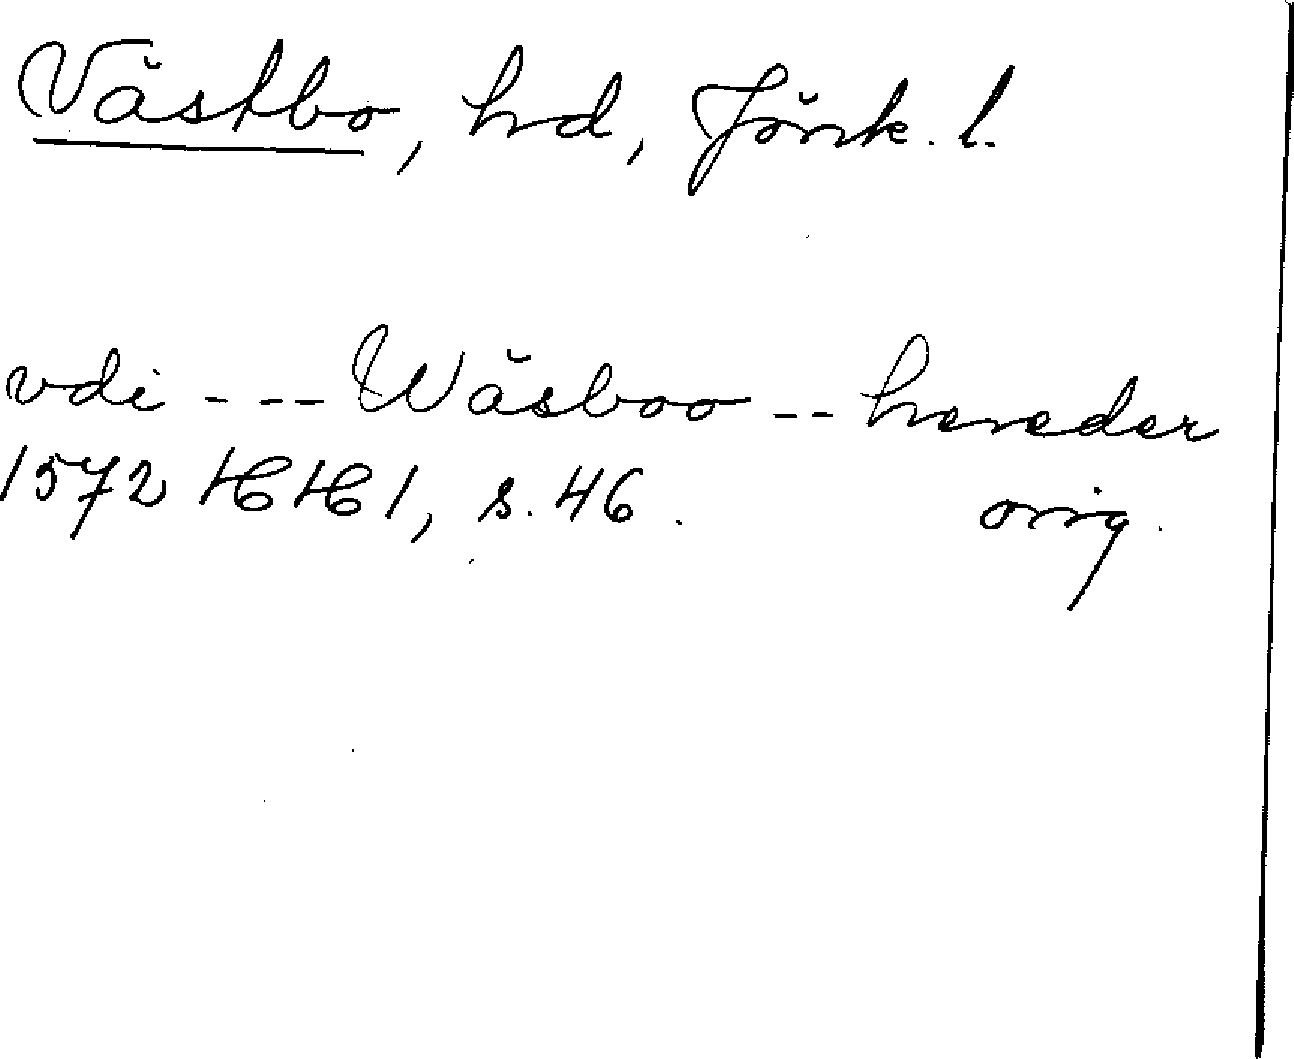 Västbo, hd, Jönk. l.
vdi --- Wäsboo -- hereder
1572 HH 1, s. 46.
orig.